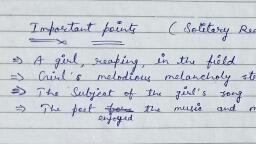 Important points ( Solitary Rea
⇒ A girl, reaping, in the field
⇒ Girl's melodious melancholy
⇒ The Subject of the girl's song
⇒ The poet enjoyed the music and